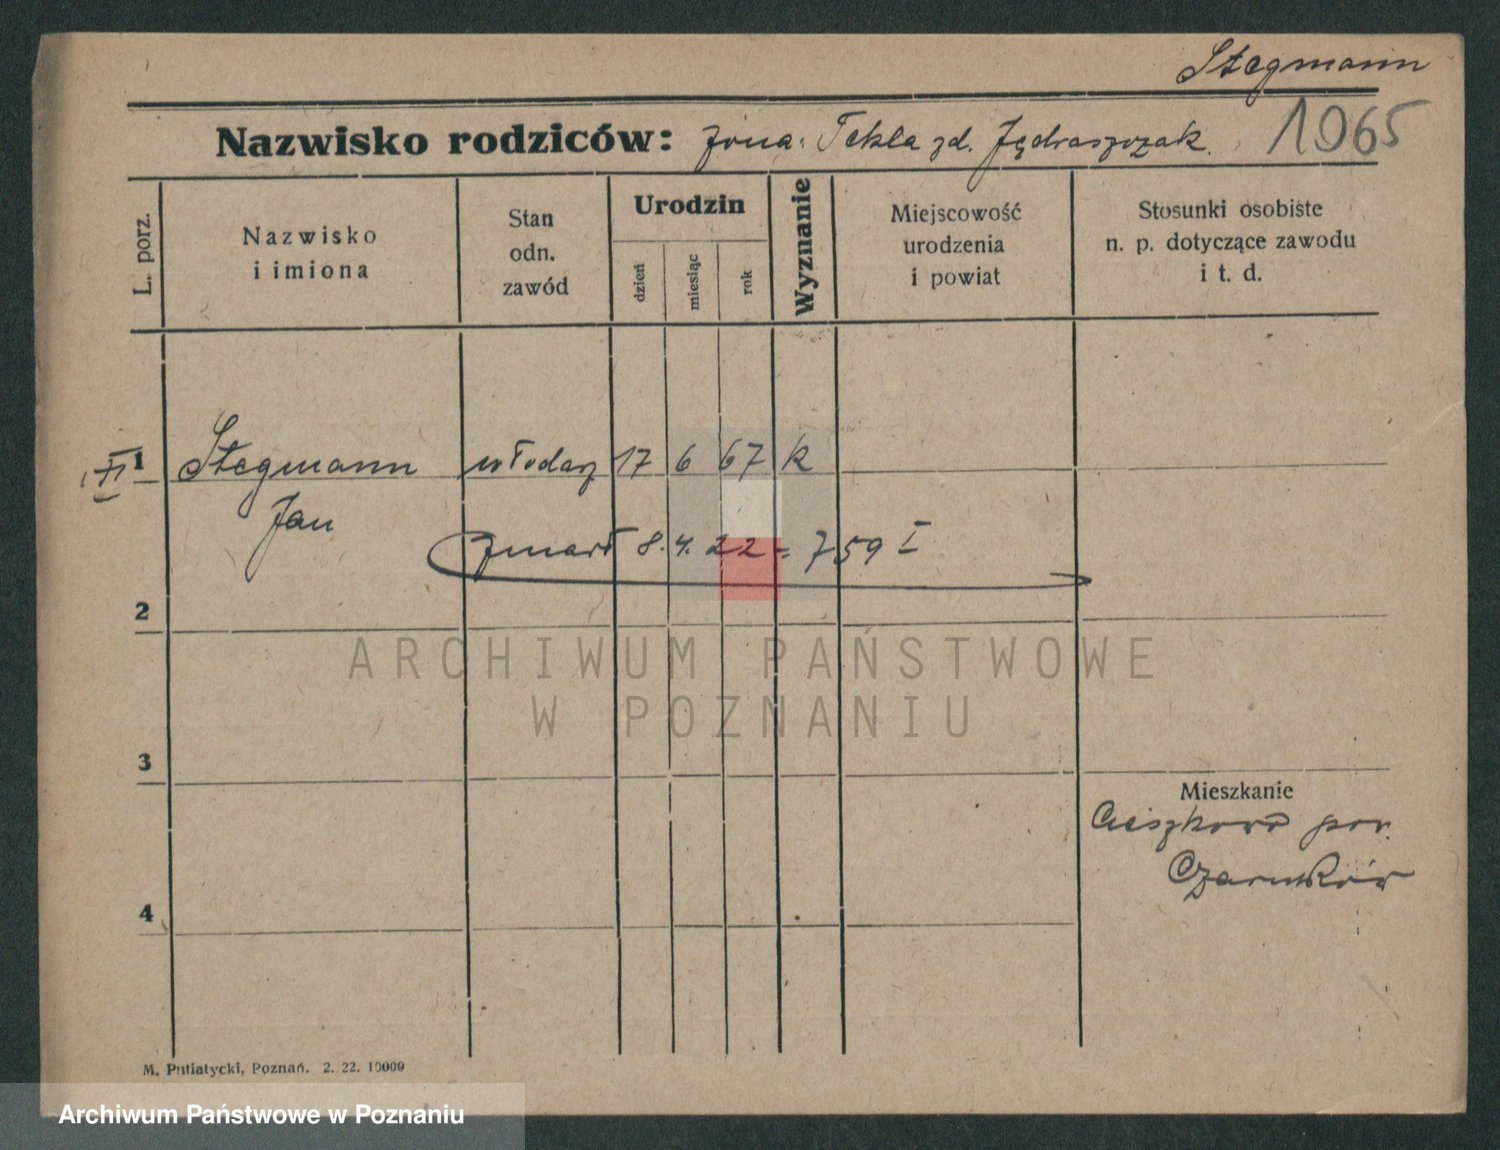 Stegmann
Nazwisko rodziców: żona: Tekla zd. Jędraszczak. 1065
L. porz.
Nazwisko
i imiona
Stan
odn.
zawód
Urodzin
dzień
miesiąc
rok
Wyznanie
Miejscowość
urodzenia
i powiat
Stosunki osobiste
n. p. dotyczące zawodu
i t. d.
1 Stegmann włodarz 17 6 67 k
Jan
zmarł 8. 4. 22 = 759 I
2
ARCHIWUM PAŃSTWOWE
W POZNANIU
3
Mieszkanie
Ciszkowo pow.
Czarnków
4
M. Putiatycki, Poznań. 2. 22. 10000
Archiwum Państwowe w Poznaniu